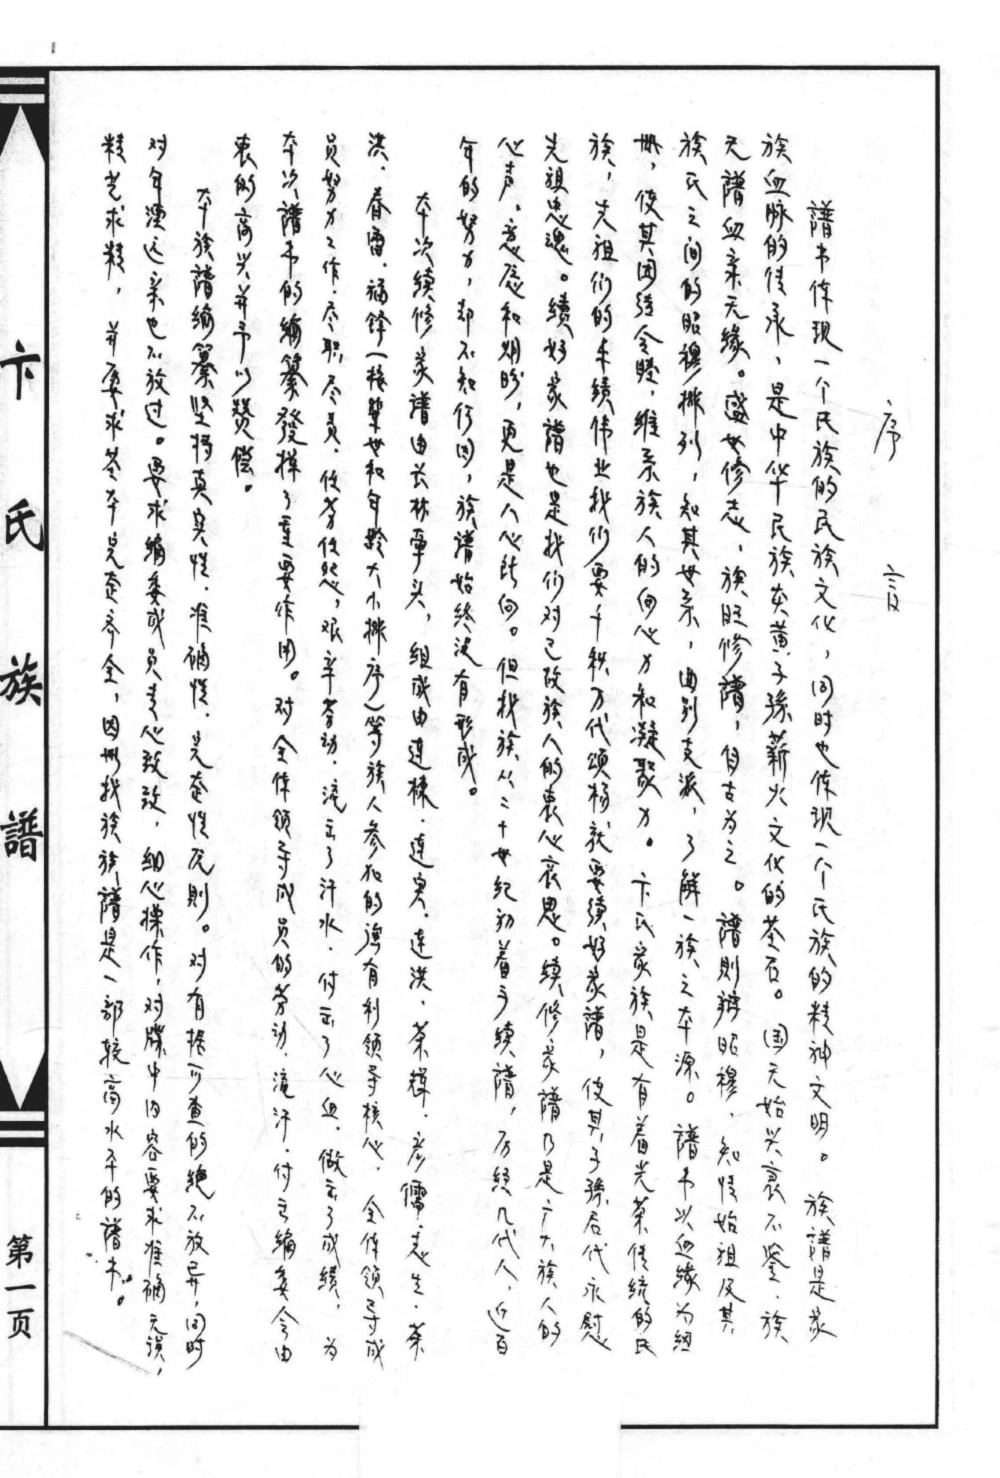 序言
譜书体现一个民族的民族文化，同时也体现一个民族的精神文明。族譜是家
族血脉的传承，是中华民族炎黄子孫薪火文化的荃石。国无始兴衰不鉴、族
无譜血亲无缘。盛世修志、族旺修譜，自古为之。譜则辨昭穆、知悟始祖及其
族氏之间的昭穆排列，知其世系，由别支派，了解一族之本源。譜书以血缘为纽
带，使其因缘会聚，维系族人的向心力和凝聚力。卞氏家族是有着光荣传统的民
族，先祖们的丰绩伟业我们要千秋万代颂杨，就要续好家譜，使其子孫后代永慰
先祖忠魂。續好家譜也是我们对已故族人的衷心哀思。续修家譜乃是广大族人的
心声、意愿和期盼，更是人心所向。但我族从二十世纪初着手续譜，历经几代人，近百
年的努力，却不知何因，族譜始终没有形成。
本次续修家譜由长林牵头，组成由连栋、连宾、连洪、荣辉、彦儒、志生、荣
洪、春雷、福锋（按辈世和年龄大小排序）等族人参加的强有利领导核心，全体领导成
员努力工作、尽职、尽责、任劳任怨，艰辛劳动、流出了汗水、付出了心血、做出了成绩，为
本次譜书的编纂發挥了重要作用。对全体领导成员的劳动、流汗、付出编委会由
衷的高兴并予以赞偿。
本族譜编纂坚持真实性、准确性、完整性原则。对有据可查的绝不放弃，同时
对年湮远亲也不放过。要求编委成员专心致致，细心操作，对牒中内容要求准确无误，
精艺求精，并要求荃本完整齐全，因此我族族譜是一部较高水平的譜书。
卞氏族譜
第一页